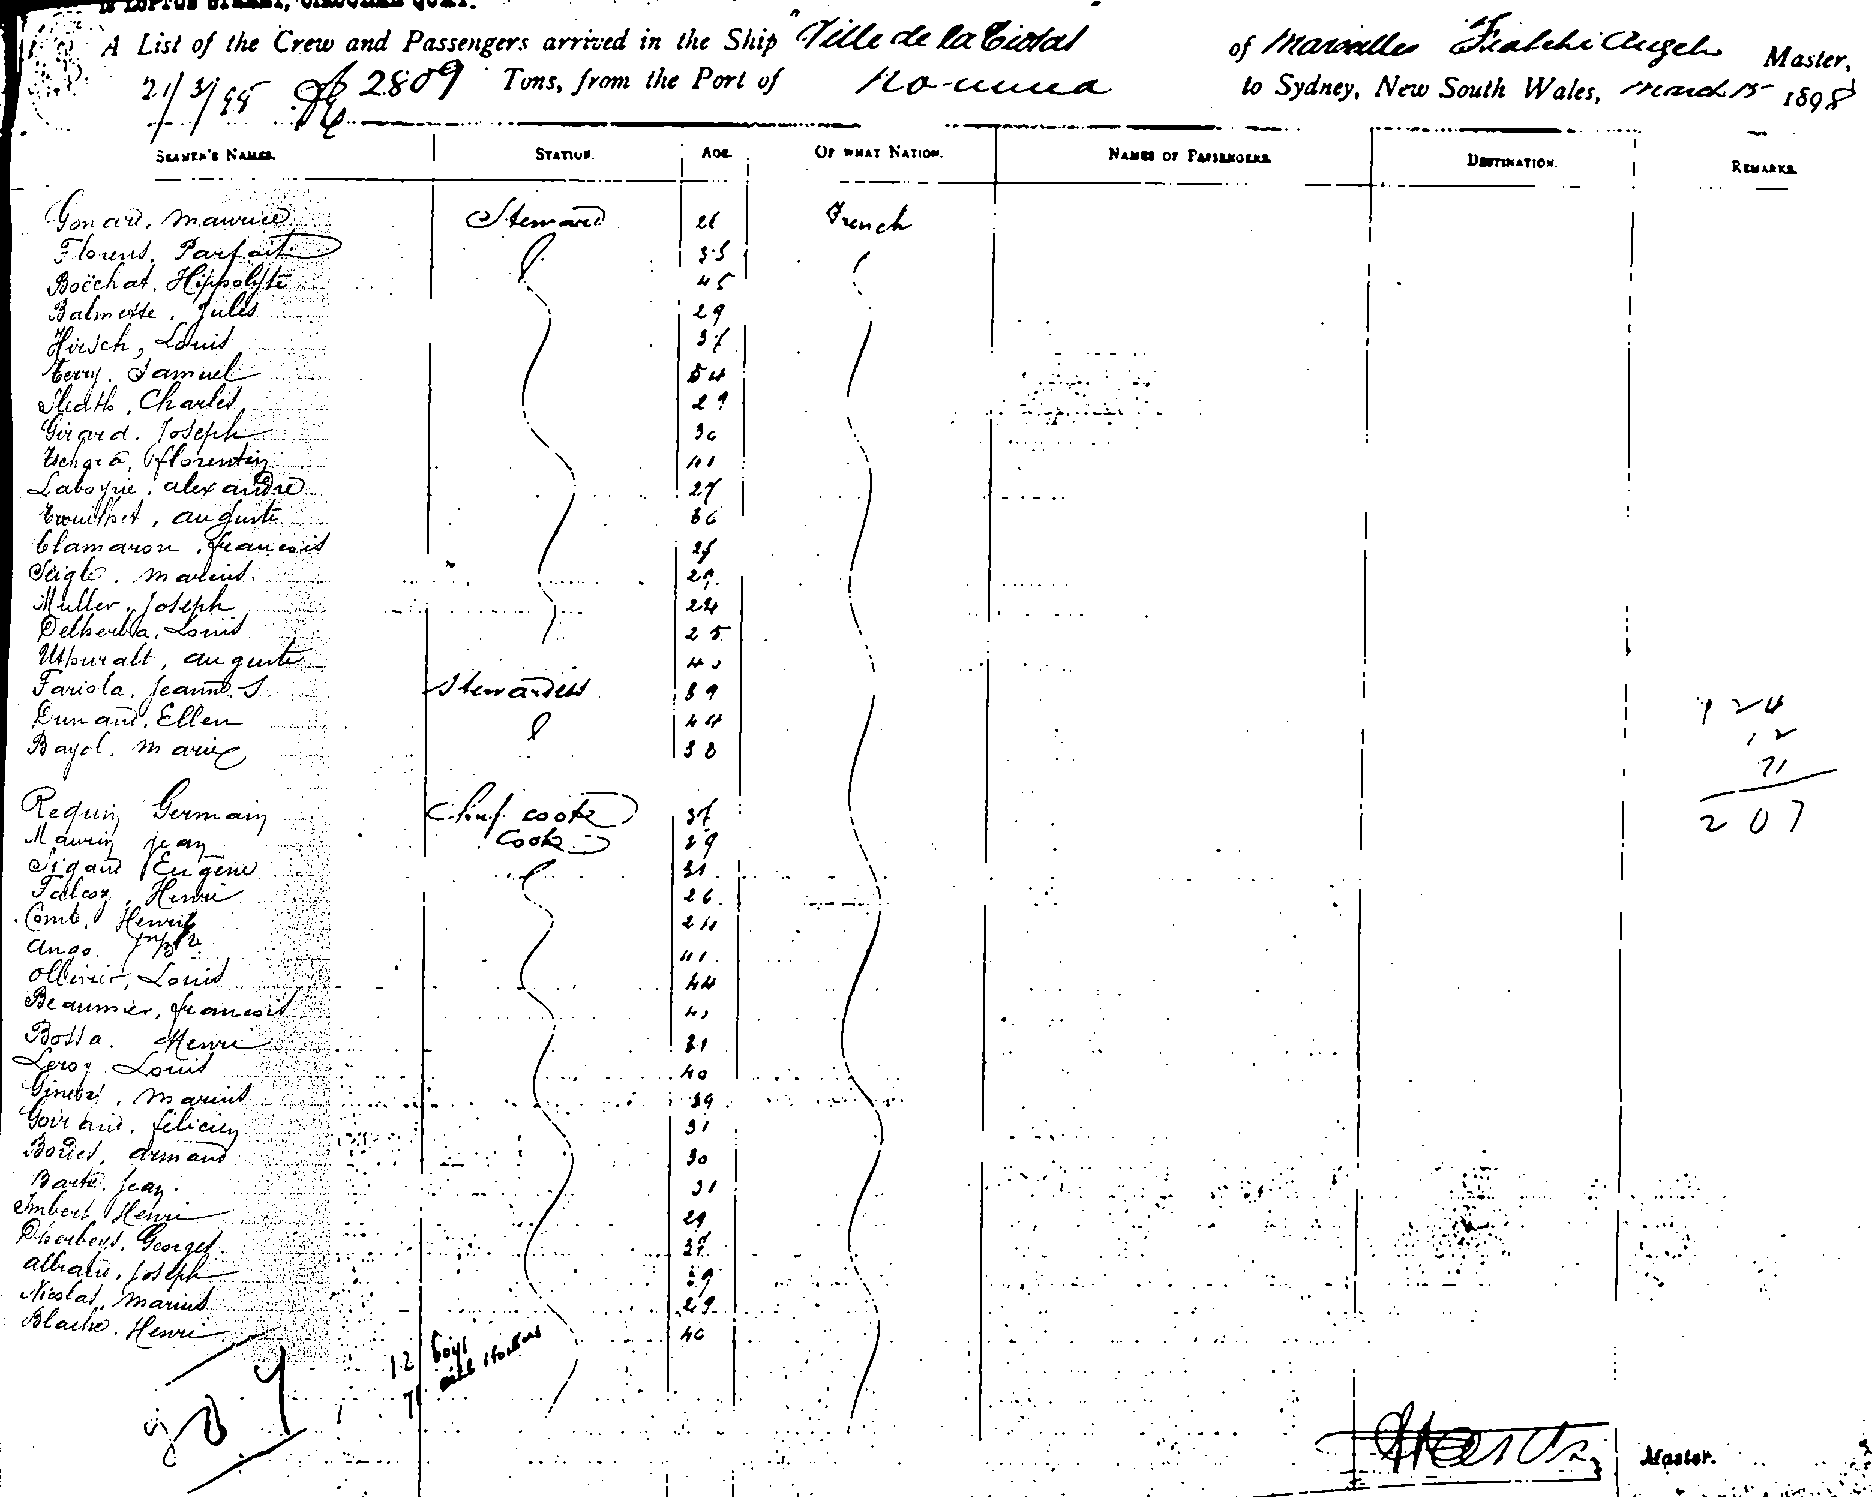 15 LOFTUS STREET, CIRCULAR QUAY.
A List of the Crew and Passengers arrived in the Ship "Ville de la Ciotat of Marseilles Angel Master,
21/3/98 2809 Tons, from the Port of Noumea to Sydney, New South Wales, March 15 1898
SEAMEN'S NAMES. STATION. AGE. OF WHAT NATION. NAMES OF PASSENGERS. DESTINATION. REMARKS.
Gonard, Maurice Steward 26 French
Florens, Parfait 35
Boëchat, Hippolyte 45
Balmette, Jules 29
Hirsch, Louis 37
Terry, Samuel 54
Charles 29
Girard, Joseph 30
florentin 41
Laboyrie, alexandre 27
auguste 36
Clamaron, francois 25
Seigle, Marius 29
Muller, Joseph 24
Delherba, Louis 25
auguste 40
Fariola, Jeanne S Stewardess 39
Dunand, Ellen 44
Bayol, Marie 38
Requin Germain Chief cook 37
Maurin Jean Cook 29
Sigaud Eugène 31
Falcoz, Henri 26
Comb, Henri 24
Ango 41
Ollivier, Louis 44
Beaumier, francois 40
Bossa, Henri 31
Leroy Louis 40
Marius 39
Goirand, felicien 31
Bories, armand 30
Barte, Jean 31
Imbert Henri 29
Georges 37
albrand, Joseph 39
Nicolas, Marius 29
Blache, Henri 40
124
12
71
207
12 boys
71
207
Master.